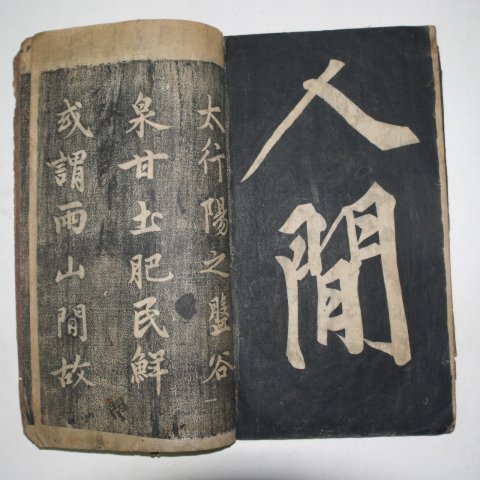 人閒
太行陽之盤谷
泉甘圡肥民鮮
或謂兩山間故